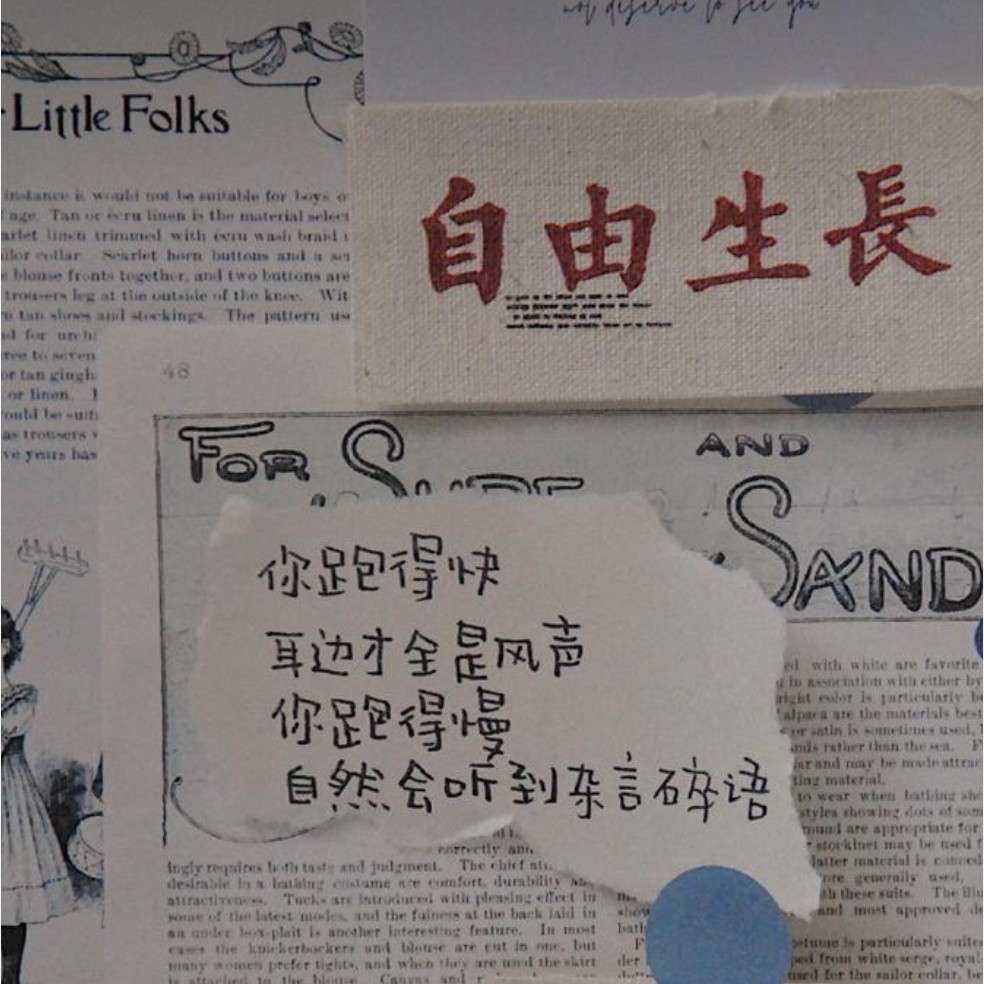 not deserve to see you
Little Folks
instance it would not be suitable for boys
age. Tan or écru linen is the material select
arlet linen trimmed with écru wash braid
ilor collar. Scarlet horn buttons and a
blouse fronts together, and two buttons are
trousers leg at the outside of the knee. Wit
n tan shoes and stockings. The pattern us
for
to seven
or tan gingh
or linen.
ould be suit
as trousers
ve years has
自由生長
48
FOR AND
SAND
你跑得快
耳边才全是风声
你跑得慢
自然会听到杂言碎语
ed with white are favorite
in association with either by
right color is particularly
alpaca are the materials best
or satin is sometimes used,
nds rather than the sea.
ar and may be made attrac
ting material.
to wear when bathing
styles showing dots of som
ound are appropriate for
stockinet may be used
latter material is
ore generally used,
th these suits. The
and most approved
correctly and
ingly requires both taste and judgment. The chief
desirable in a bathing costume are comfort, durability
attractiveness. Tucks are introduced with pleasing effect in
some of the latest modes, and the fulness at the back laid in
an under box-plait is another interesting feature. In most
cases the knickerbockers and blouse are cut in one, but
many women prefer tights, and when they are used the skirt
is attached to the blouse. Canvas and
show
bath
der
ostume is particularly suite
ped from white serge, royal
used for the sailor collar,